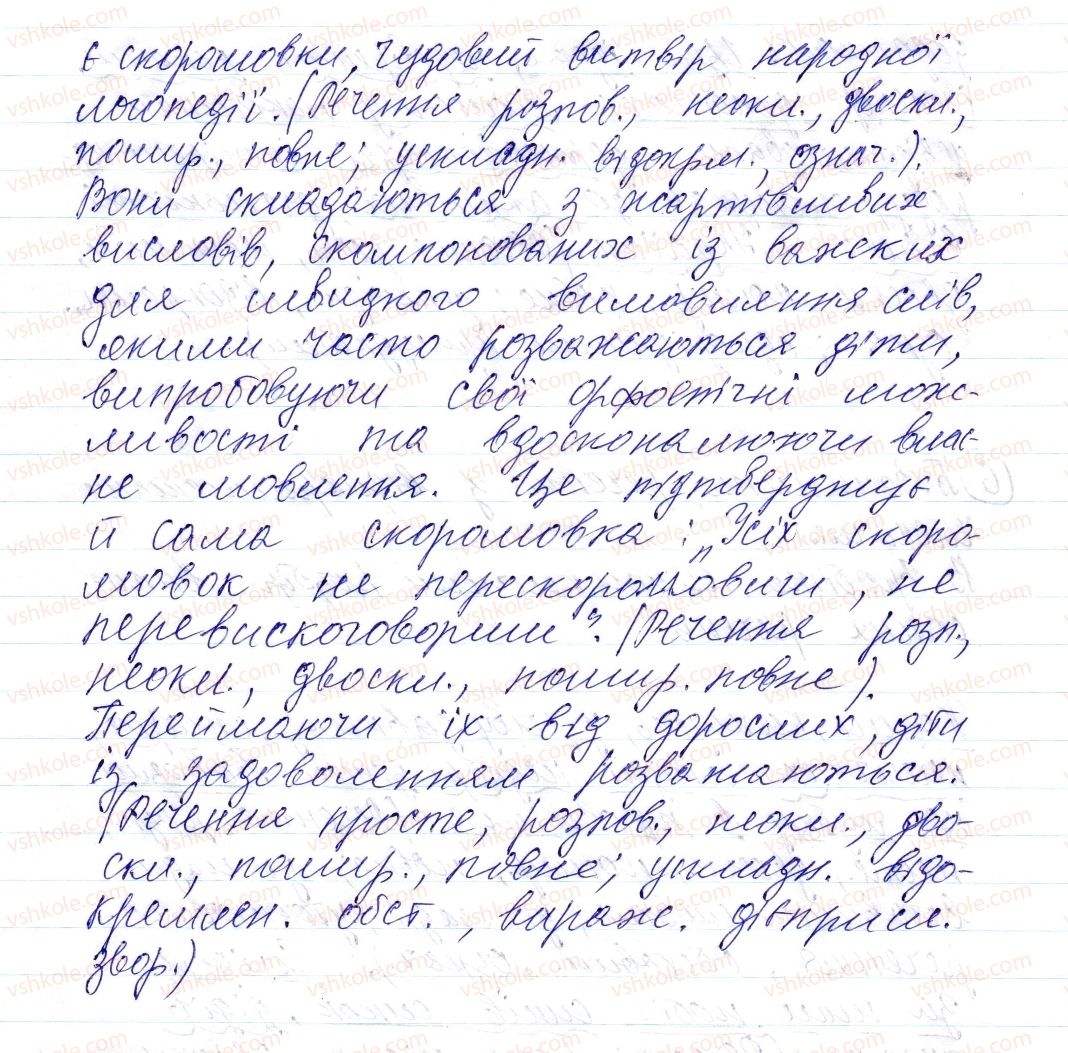 є скоромовки, чудовий витвір народної
логопедії. (Речення розпов., неокл., двоскл.,
пошир., повне; ускладн. відокрм., означ.).
Вони складаються з жартівливих
висловів, скомпонованих із важких
для швидкого вимовляння слів,
якими часто розважаються діти,
випробовуючи свої орфоепічні мож-
ливості та вдосконалюючи влас-
не мовлення. Це підтверджує
й сама скоромовка: „Усіх скоро-
мовок не перескоромовиш, не
перевискоговориш". (Речення розп.,
неокл., двоскл., пошир. повне).
Переймаючи їх від дорослих, діти
із задоволенням розважаються.
(Речення просте, розпов., неокл., дво-
скл., пошир., повне; ускладн. відо-
кремлен. обст., вираж. дієприсл.
звор.)